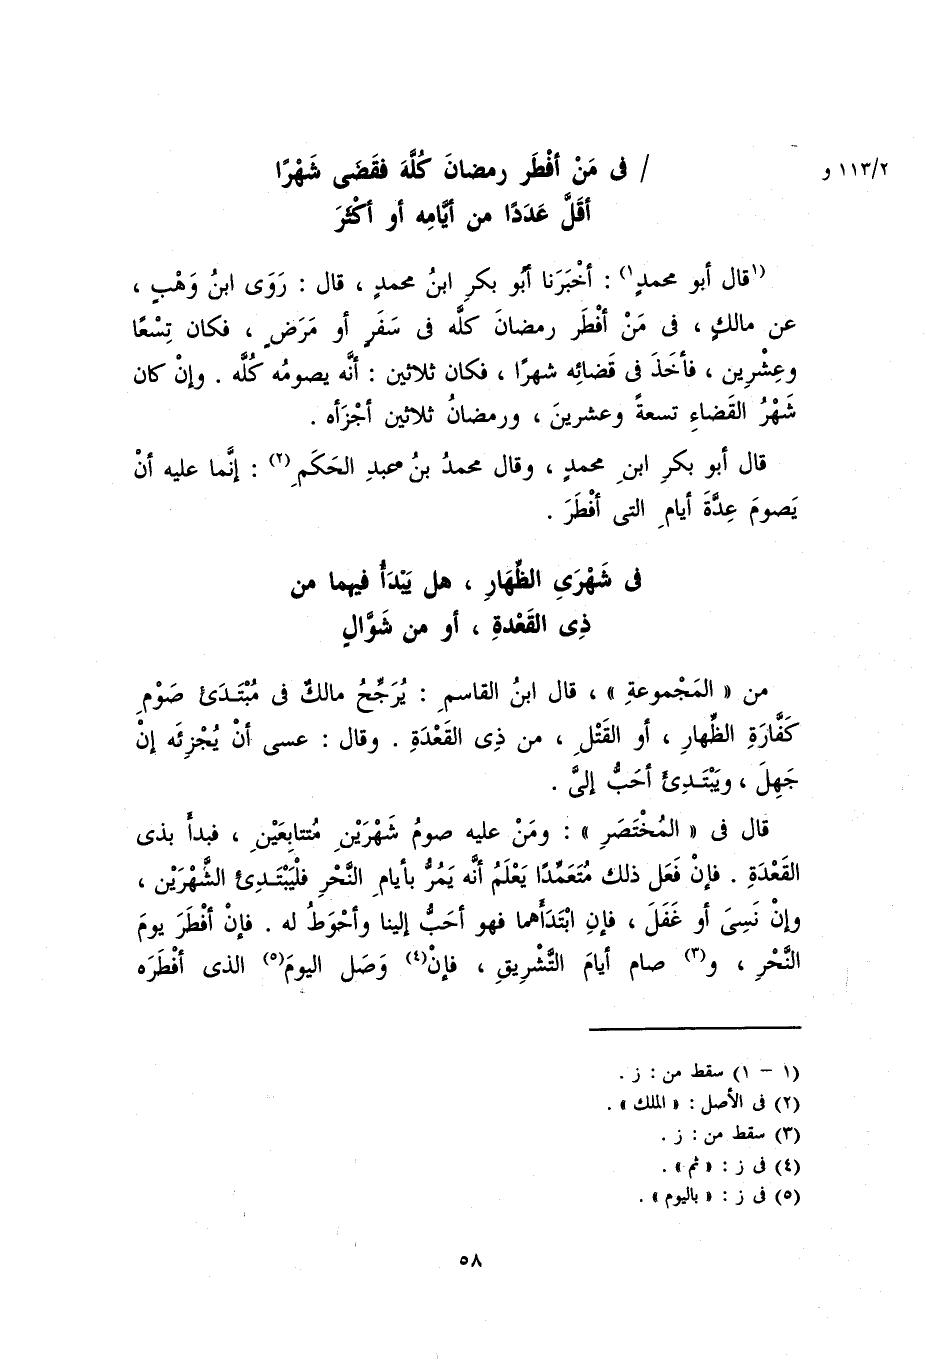 ٢/١١٣ و
/ فى مَنْ أفْطَر رمضانَ كُلَّهَ فقَضَى شَهْرًا
أقَلَّ عَدَدًا من أيَّامِه أو أكْثَرَ
(١قال أبو محمدٍ١) : أخْبَرَنا أبُو بكرِ ابنُ محمدٍ ، قال : رَوَى ابنُ وَهْبٍ ،
عن مالكٍ ، فى مَنْ أفْطَر رمضانَ كلَّه فى سَفَرٍ أو مَرَضٍ ، فكان تِسْعًا
وعِشْرِين ، فأخَذَ فى قَضائِه شهرًا ، فكان ثلاثين : أنَّه يصومُه كُلَّه . وإنْ كان
شَهْرُ القَضاءِ تسعةً وعشرينَ ، ورمضانُ ثلاثين أجْزَأه .
قال أبو بكرِ ابنِ محمدٍ ، وقال محمدُ بنُ عبدِ الحَكَمِ(٢) : إنَّما عليه أنْ
يَصومَ عِدَّةَ أيامِ التى أفْطَرَ .
فى شَهْرَىِ الظِّهَارِ ، هل يَبْدَأُ فيهما من
ذِى القَعْدةِ ، أو من شَوَّالٍ
من « المَجْموعةِ » ، قال ابنُ القاسمِ : يُرَجِّحُ مالكٌ فى مُبْتَـدَئ صَوْمِ
كَفَّارَةِ الظِّهارِ ، أو القَتْلِ ، من ذِى القَعْدَةِ . وقال : عسى أنْ يُجْزِئَه إنْ
جَهِلَ ، ويَبْتَـدِئَ أحَبُّ إلىَّ .
قال فى « المُخْتَصَرِ » : ومَنْ عليه صومُ شَهْرَيْنِ مُتتابِعَيْنِ ، فبدأَ بذى
القَعْدَةِ . فإنْ فَعَل ذلك مُتَعَمِّدًا يَعْلَمُ أنَّه يَمُرُّ بأيامِ النَّحْرِ فلْيَبْتَـدِئ الشَّهْرَيْن ،
وإنْ نَسِىَ أو غَفَلَ ، فإنِ ابْتَدَأَهما فهو أحَبُّ إلينا وأحْوَطُ له . فإنْ أفْطَرَ يومَ
النَّحْرِ ، و(٣) صام أيامَ التَّشْرِيقِ ، فإنْ(٤) وَصَل اليومَ(٥) الذى أفْطَرَه
(١ - ١) سقط من : ز .
(٢) فى الأصل : « الملك » .
(٣) سقط من : ز .
(٤) فى ز : « ثم » .
(٥) فى ز : « باليوم » .
٥٨